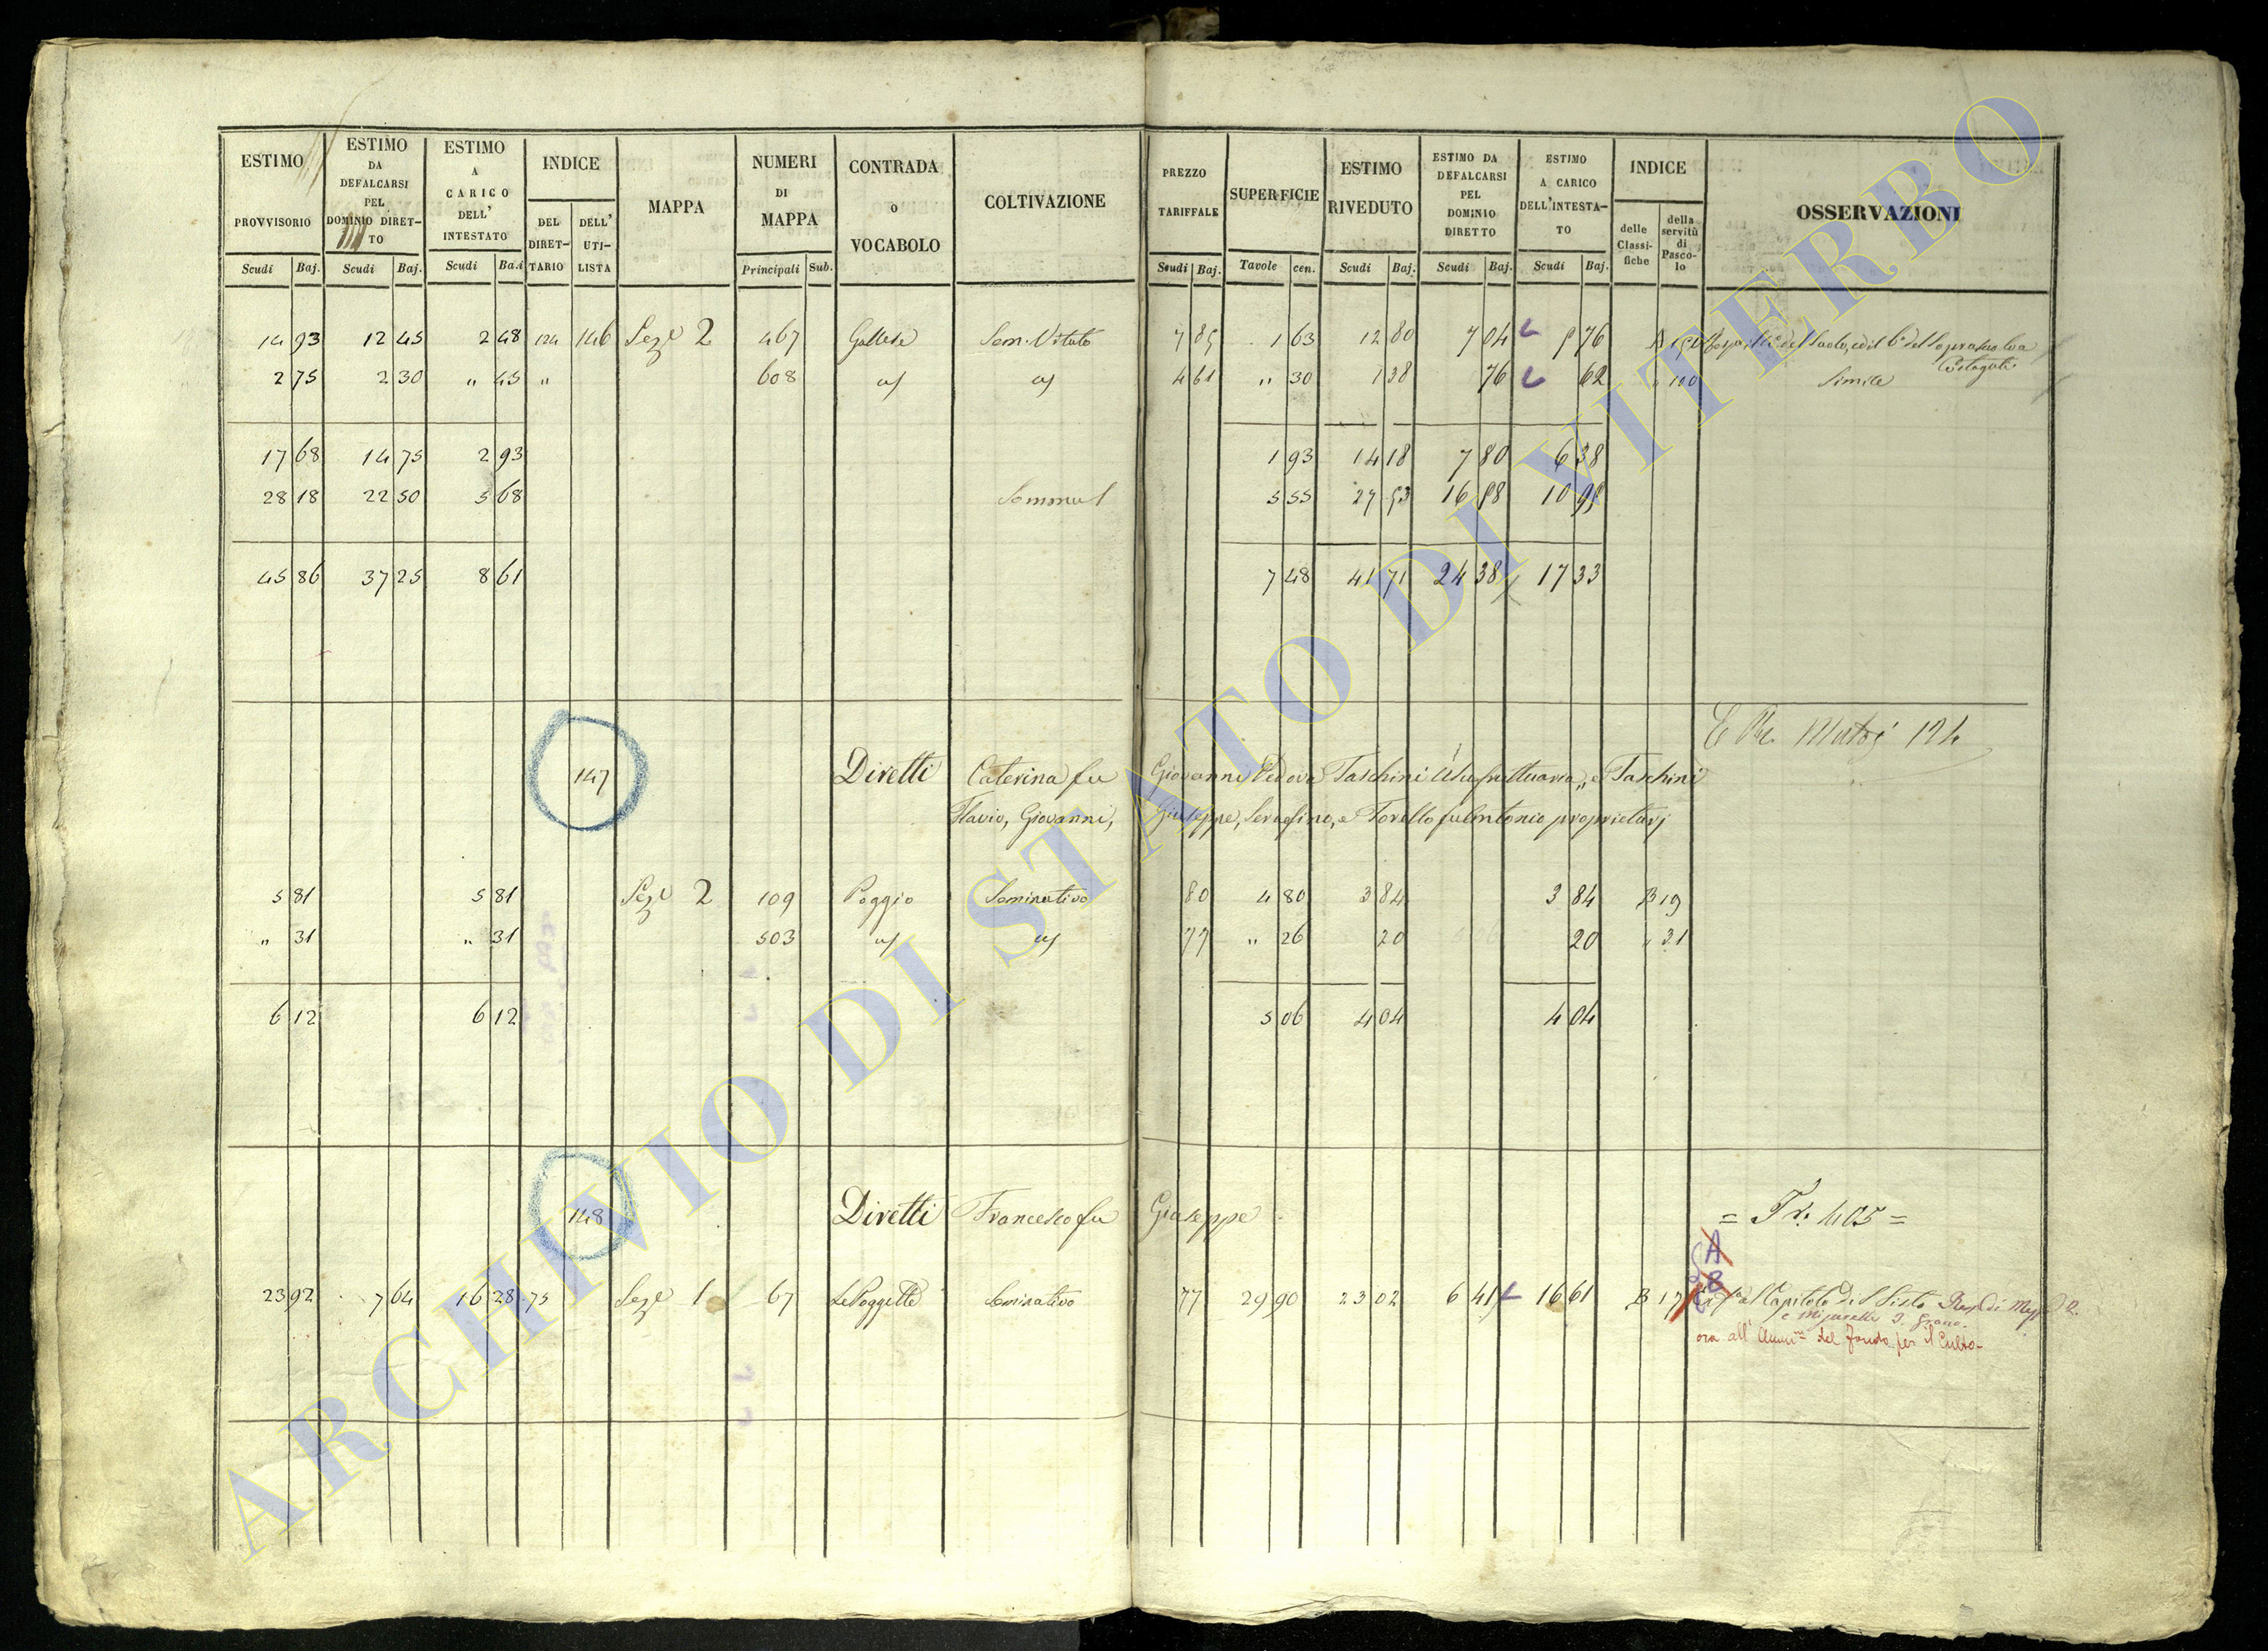 ESTIMO PROVVISORIO Scudi Baj. | ESTIMO DA DEFALCARSI PEL DOMINIO DIRET-TO Scudi Baj. | ESTIMO A CARICO DELL' INTESTATO Scudi Ba.i | INDICE DEL DIRET-TARIO DELL' UTI-LISTA | MAPPA | NUMERI DI MAPPA Principali Sub. | CONTRADA o VOCABOLO | COLTIVAZIONE | PREZZO TARIFFALE Scudi Baj. | SUPERFICIE Tavole cen. | ESTIMO RIVEDUTO Scudi Baj. | ESTIMO DA DEFALCARSI PEL DOMINIO DIRETTO Scudi Baj. | ESTIMO A CARICO DELL'INTESTA-TO Scudi Baj. | INDICE delle Classi-fiche della servitù di Pasco-lo | OSSERVAZIONI
14 93 12 45 2 48 124 146 Seze 2 467 Gallese Sem. Vitato 7 85 1 63 12 80 7 04 5 76
2 75 2 30 " 45 " 608 4 61 " 30 1 38 76 62 " 100 Simile
17 68 14 75 2 93 1 93 14 18 7 80 6 38
28 18 22 50 5 68 5 55 27 53 16 58 10 95
45 86 37 25 8 61 7 48 41 71 24 38 17 33
124
147 Diretti Caterina fu Giovanni Vedova Taschini Usufruttuaria, e Taschini
Flavio, Giovanni, Giuseppe, Serafino, e Torello fu Antonio proprietarj
5 81 5 81 Seze 2 109 Poggio Seminativo 80 4 80 3 84 3 84 B 19
" 31 " 31 503 77 " 26 20 20 " 21
6 12 6 12 5 06 4 04 4 04
148 Diretti Francesco fu Giuseppe
= Tr. 405 =
A
B
23 92 7 64 16 28 75 Seze 1 67 Le Poggette Seminativo 77 29 90 23 02 6 41 16 61 B 17 al Capitolo di S. Sisto
ora all' Amm.ne del fondo per il Culto
ARCHIVIO DI STATO DI VITERBO